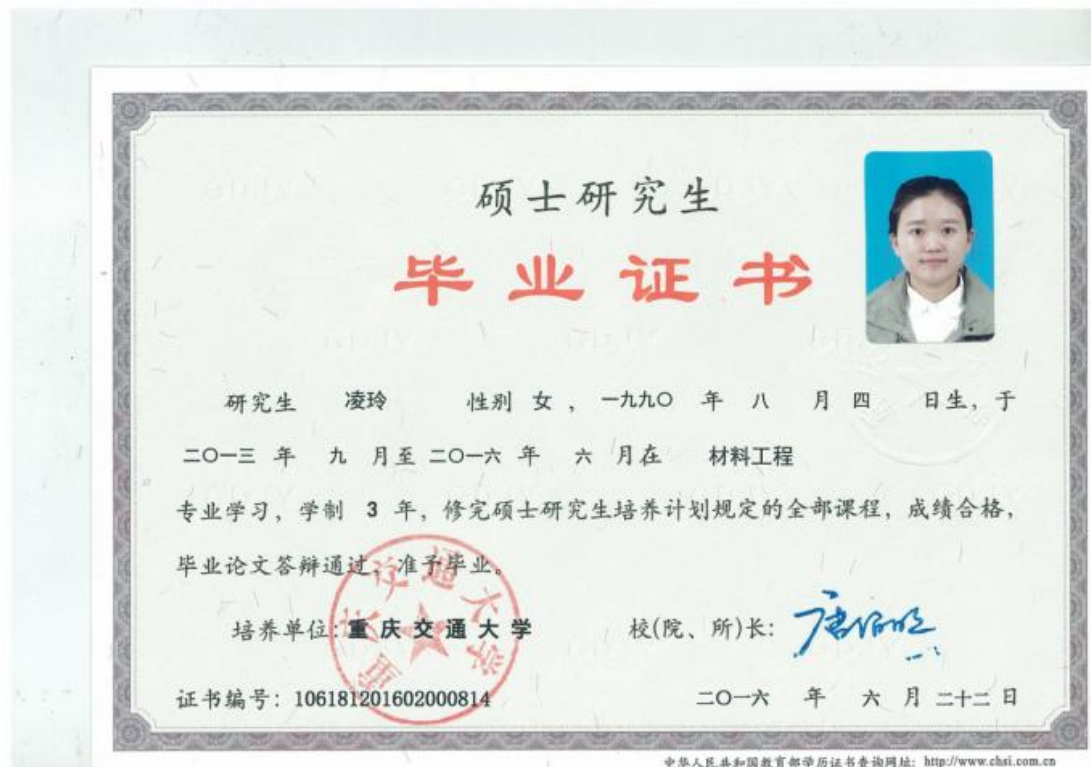 硕士研究生
毕业证书
研究生 凌玲 性别 女 , 一九九〇 年 八 月 四 日生, 于
二〇一三 年 九 月至 二〇一六 年 六 月在 材料工程
专业学习, 学制 3 年, 修完硕士研究生培养计划规定的全部课程, 成绩合格,
毕业论文答辩通过, 准予毕业。
培养单位: 重庆交通大学 校(院、所)长: 唐伯明
重庆交通大学
证书编号: 106181201602000814 二〇一六 年 六 月 二十二 日
中华人民共和国教育部学历证书查询网址: http://www.chsi.com.cn